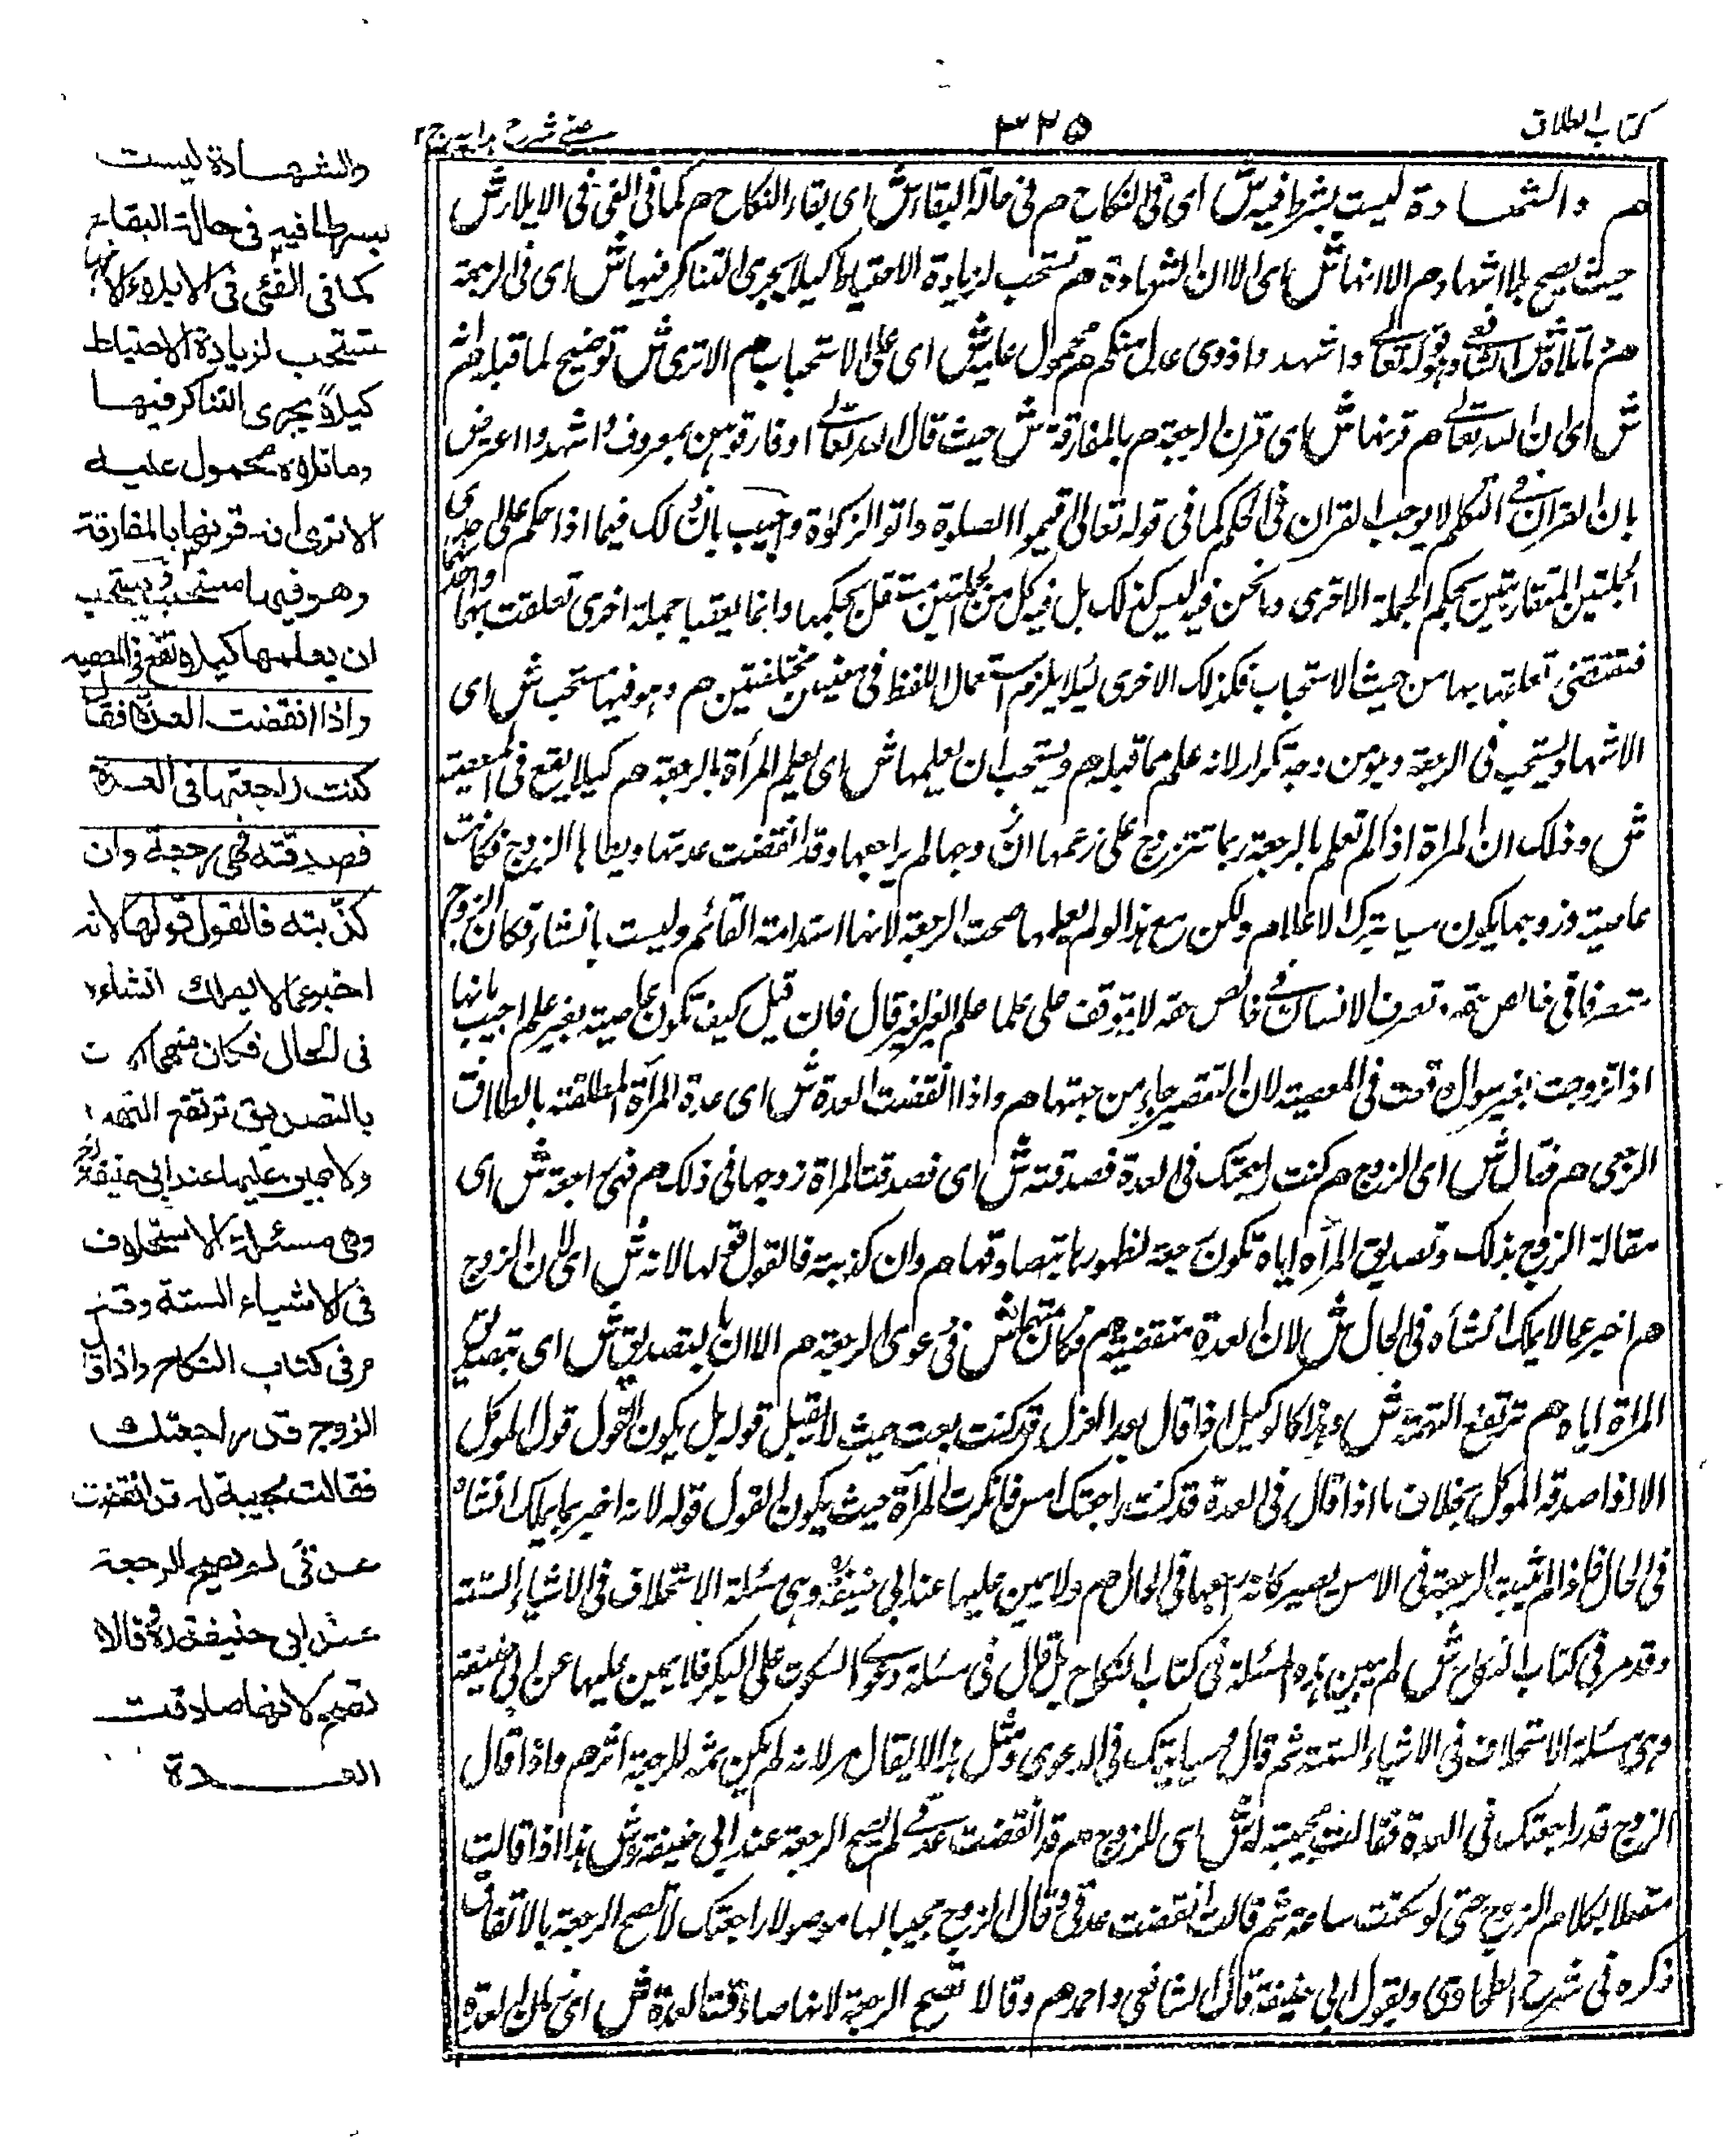 كتاب الطلاق
٣٢٥
عيني شرح هدايه ج٢
هم والشهادة ليست بشرط فيه ش اى فى النكاح هم فى حالة البقاء ش اى بقاء النكاح هم كما فى الفئ فى الايلاء ش
حيث يصح بلا اشهاد هم الا انها ش اى الا ان الشهادة هم تستحب لزيادة الاحتياط كيلا يجرى التناكر فيها ش اى فى الرجعة
هم وما تلاه ش الشافعي وهو قوله تعالى واشهدوا ذوى عدل منكم هم محمول عليه ش اى على الاستحباب هم الا ترى ش توضيح لما قبله هم انه
ش اى ان الله تعالى هم قرنها ش اى قرن الرجعة هم بالمفارقة ش حيث قال الله تعالى او فارقوهن بمعروف واشهدوا اعترض
بان القران فى التكلم لا يوجب القران فى الحكم كما فى قوله تعالى اقيموا الصلوة واتوا الزكوة واجيب بان ذلك فيما اذا حكم على احدى
الجملتين المتقاربتين بحكم الجملة الاخرى وما نحن فيه ليس كذلك بل فيه كل من الجملتين مستقل بحكمها وانما يعقبها جملة اخرى تعلقت بها
فتقتضى تعلقها بها من حيث الاستحباب فكذلك الاخرى ليلا يلزم استعمال اللفظ فى معنيين مختلفتين هم وهو فيها مستحب ش اى
الاشهاد يستحب فى الرجعة وهو من وجه تكرار لانه علم مما قبله هم ويستحب ان يعلمها ش اى يعلم المرأة بالرجعة هم كيلا يقع فى المعصية
ش وذلك ان المراة اذا لم تعلم بالرجعة ربما تتزوج على زعمها ان زوجها لم يراجعها وقد انقضت عدتها ويطاها الزوج فكانت
عاصية وزوجها يكون مسيا بترك الاعلام ولكن مع هذا لو لم يعلمها صحت الرجعة لانها استدامة القائم وليست بانشاء فكان الزوج
متصرفا فى خالص حقه وتصرف الانسان فى خالص حقه لا يتوقف على علم الغير قال فان قيل كيف تكون عاصية بغير علم اجيب بانها
اذا تزوجت بغير سوال وقعت فى المعصية لان التقصير جاء من جهتها هم واذا انقضت العدة ش اى عدة المرأة المطلقة بالطلاق
الرجعى هم فقال ش اى الزوج هم كنت راجعتك فى العدة فصدقته ش اى فصدقت المراة زوجها فى ذلك هم فهى رجعة ش اى
مقالة الزوج بذلك وتصديق المرأه اياه تكون رجعة لظهورها بتصادقهما هم وان كذبته فالقول قولها لانه ش اى لان الزوج
هم اخبر عما لا يملك انشاه فى الحال ش لان العدة منقضية هم فكان متهما ش فى دعوى الرجعة هم الا ان بالتصديق ش اى بتصديق
المراة اياه هم ترتفع التهمة ش وهذا كالوكيل اذا قال بعد العزل قد كنت بعت حيث لا يقبل قوله بل يكون القول قول الموكل
الا اذا صدقه الموكل بخلاف ما اذا قال فى العدة قد كنت راجعتك امس فانكرت المرأة حيث يكون القول قوله لانه اخبر بما يملك انشاه
فى الحال فاذا لم يثبت الرجعة فى الامس يصير كانه راجعها فى الحال هم ولا يمين عليها عند ابى حنيفة وهى مسئلة الاستحلاف فى الاشياء الستة
وقد مر فى كتاب النكاح ش لم يبين هذه المسئلة فى كتاب النكاح بل قال فى مسئلة دعوى السكوت على البكر فلا يمين عليها عن ابى حنيفة
وهى مسئلة الاستحلاف فى الاشياء الستة ثم قال وسياتيك فى الدعوى ومثل هذا لا يقال مر لانه لم يكن ثمه للرجعة اثر هم واذا قال
الزوج قد راجعتك فى العدة فقالت مجيبة له ش اى للزوج هم قد انقضت عدتى لم تصح الرجعة عند ابى حنيفة ش هذا اذا قالت
متصلا بكلام الزوج حتى لو سكتت ساعة ثم قالت انقضت عدتى وقال الزوج مجيبا لها موصولا راجعتك لا تصح الرجعة بالاتفاق
ذكره فى شرح الطحاوى وبقول ابى حنيفة قال الشافعى واحمد هم وقالا تصح الرجعة لانها صادفت العدة ش اى لان العدة
والشهادة ليست
بشرط فيه فى حالة البقاء
كما فى الفئى فى الايلاء الا انها
تستحب لزيادة الاحتياط
كيلا يجرى التناكر فيها
وما تلاه محمول عليه
الا ترى انه قرنها بالمفارقة
وهو فيها مستحب ويستحب
ان يعلمها كيلا تقع فى المعصيه
واذا انقضت العدة فقال
كنت راجعتها فى العدة
فصدقته فهى رجعة وان
كذبته فالقول قولها لانه
اخبر عما لا يملك انشاءه
فى الحال فكان متهما الا ان
بالتصديق ترتفع التهمة
ولا يمين عليها عند ابى حنيفة
وهى مسئلة الاستحلاف
فى الاشياء الستة وقد
مر فى كتاب النكاح واذا قال
الزوج قد راجعتك
فقالت مجيبة له قد انقضت
عدتى لم تصح الرجعة
عند ابى حنيفة وقالا
تصح لانها صادفت
العدة